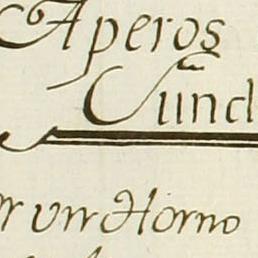 Aperos
Cund
or un Horno